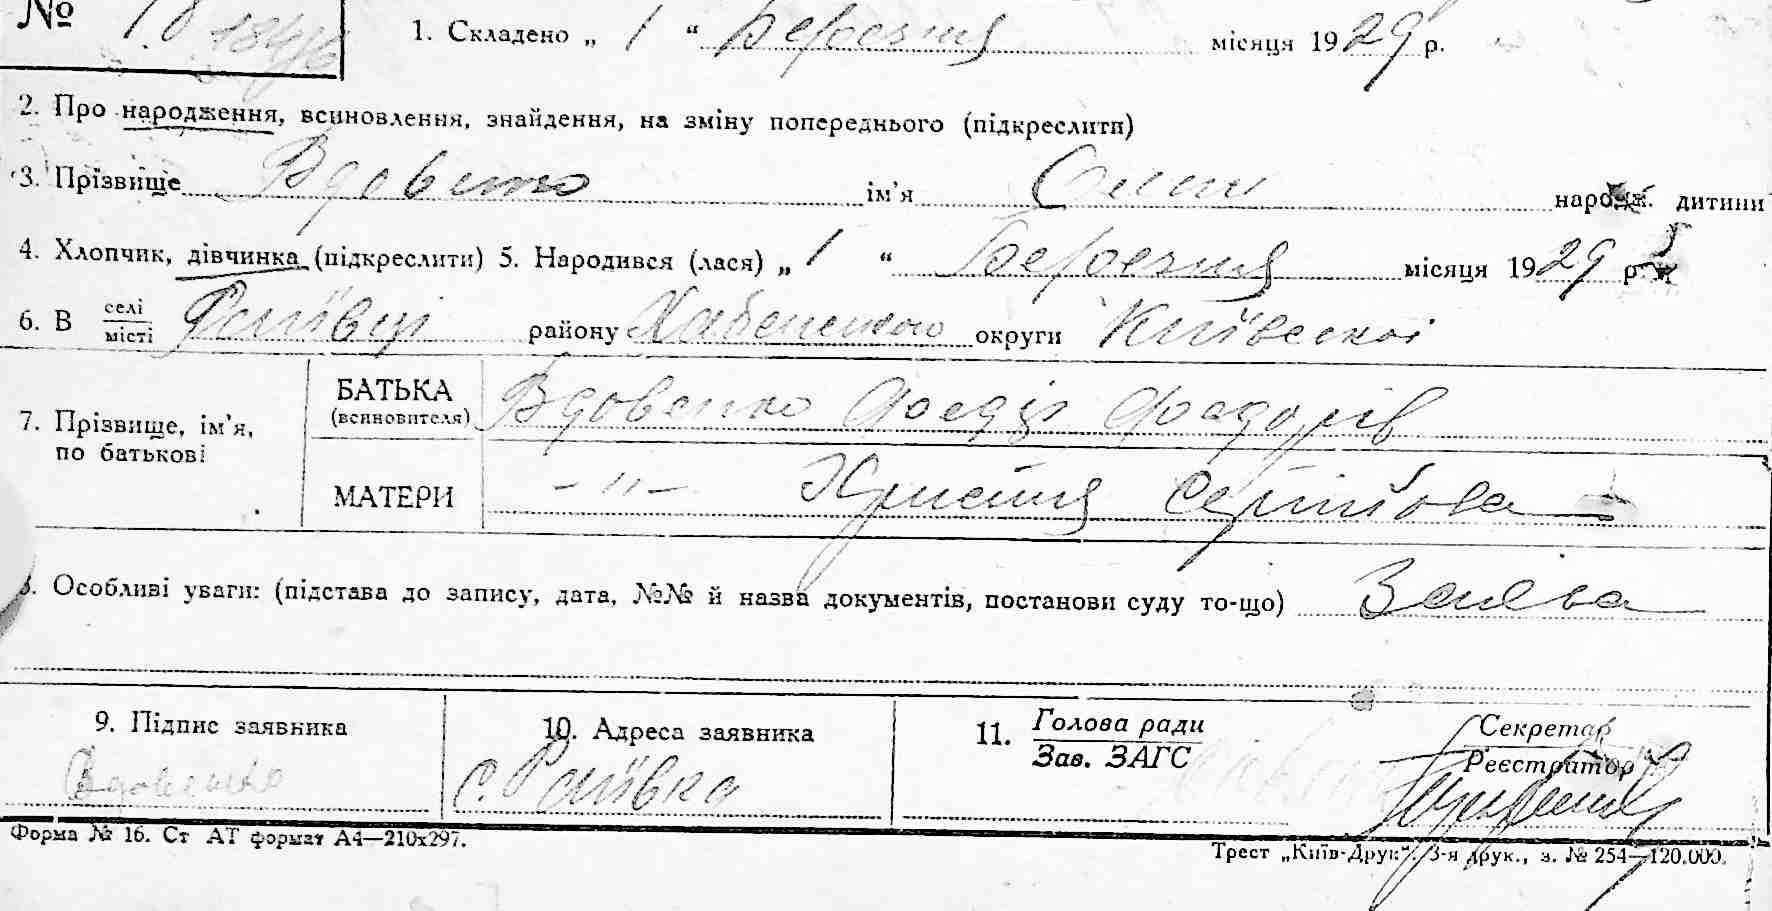 №
1. Складено „ 1 “ Березня місяця 1929 р.
2. Про народження, всиновлення, знайдення, на зміну попереднього (підкреслити)
3. Прізвище Вдовенко ім'я народж. дитини
4. Хлопчик, дівчинка (підкреслити) 5. Народився (лася) „ 1 “ Березня місяця 1929 р.
6. В селі місті району Хабенського округи Київської
7. Прізвище, ім'я, по батькові
БАТЬКА (всиновителя) Вдовенко Федір Федорів
МАТЕРИ – " – Христя Сергійова
8. Особливі уваги: (підстава до запису, дата, №№ й назва документів, постанови суду то-що) Заява
9. Підпис заявника
10. Адреса заявника
11. Голова ради Зав. ЗАГС
Секретар Реєстратор
Вдовенко
Форма № 16. Ст АТ формат А4—210х297.
Трест „Київ-Друк“. 3-я друк., з. № 254—120.000.